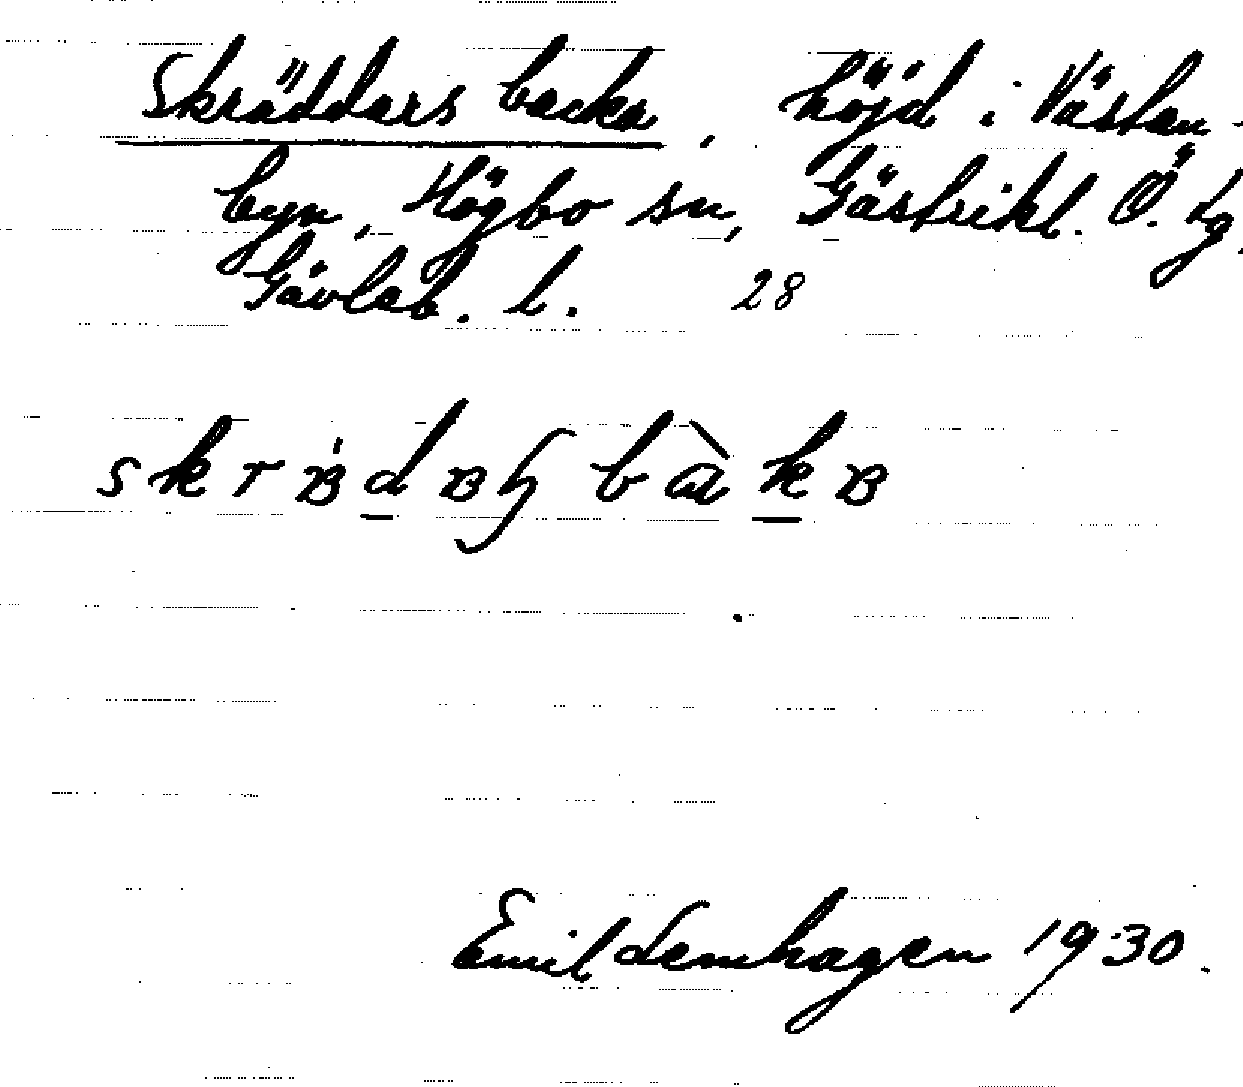 Skräddars backa, höjd i Västan-
byn, Högbo sn, Gästrikl. Ö. tg,
Gävleb. l. 28
Emil Lemhagen 1930.